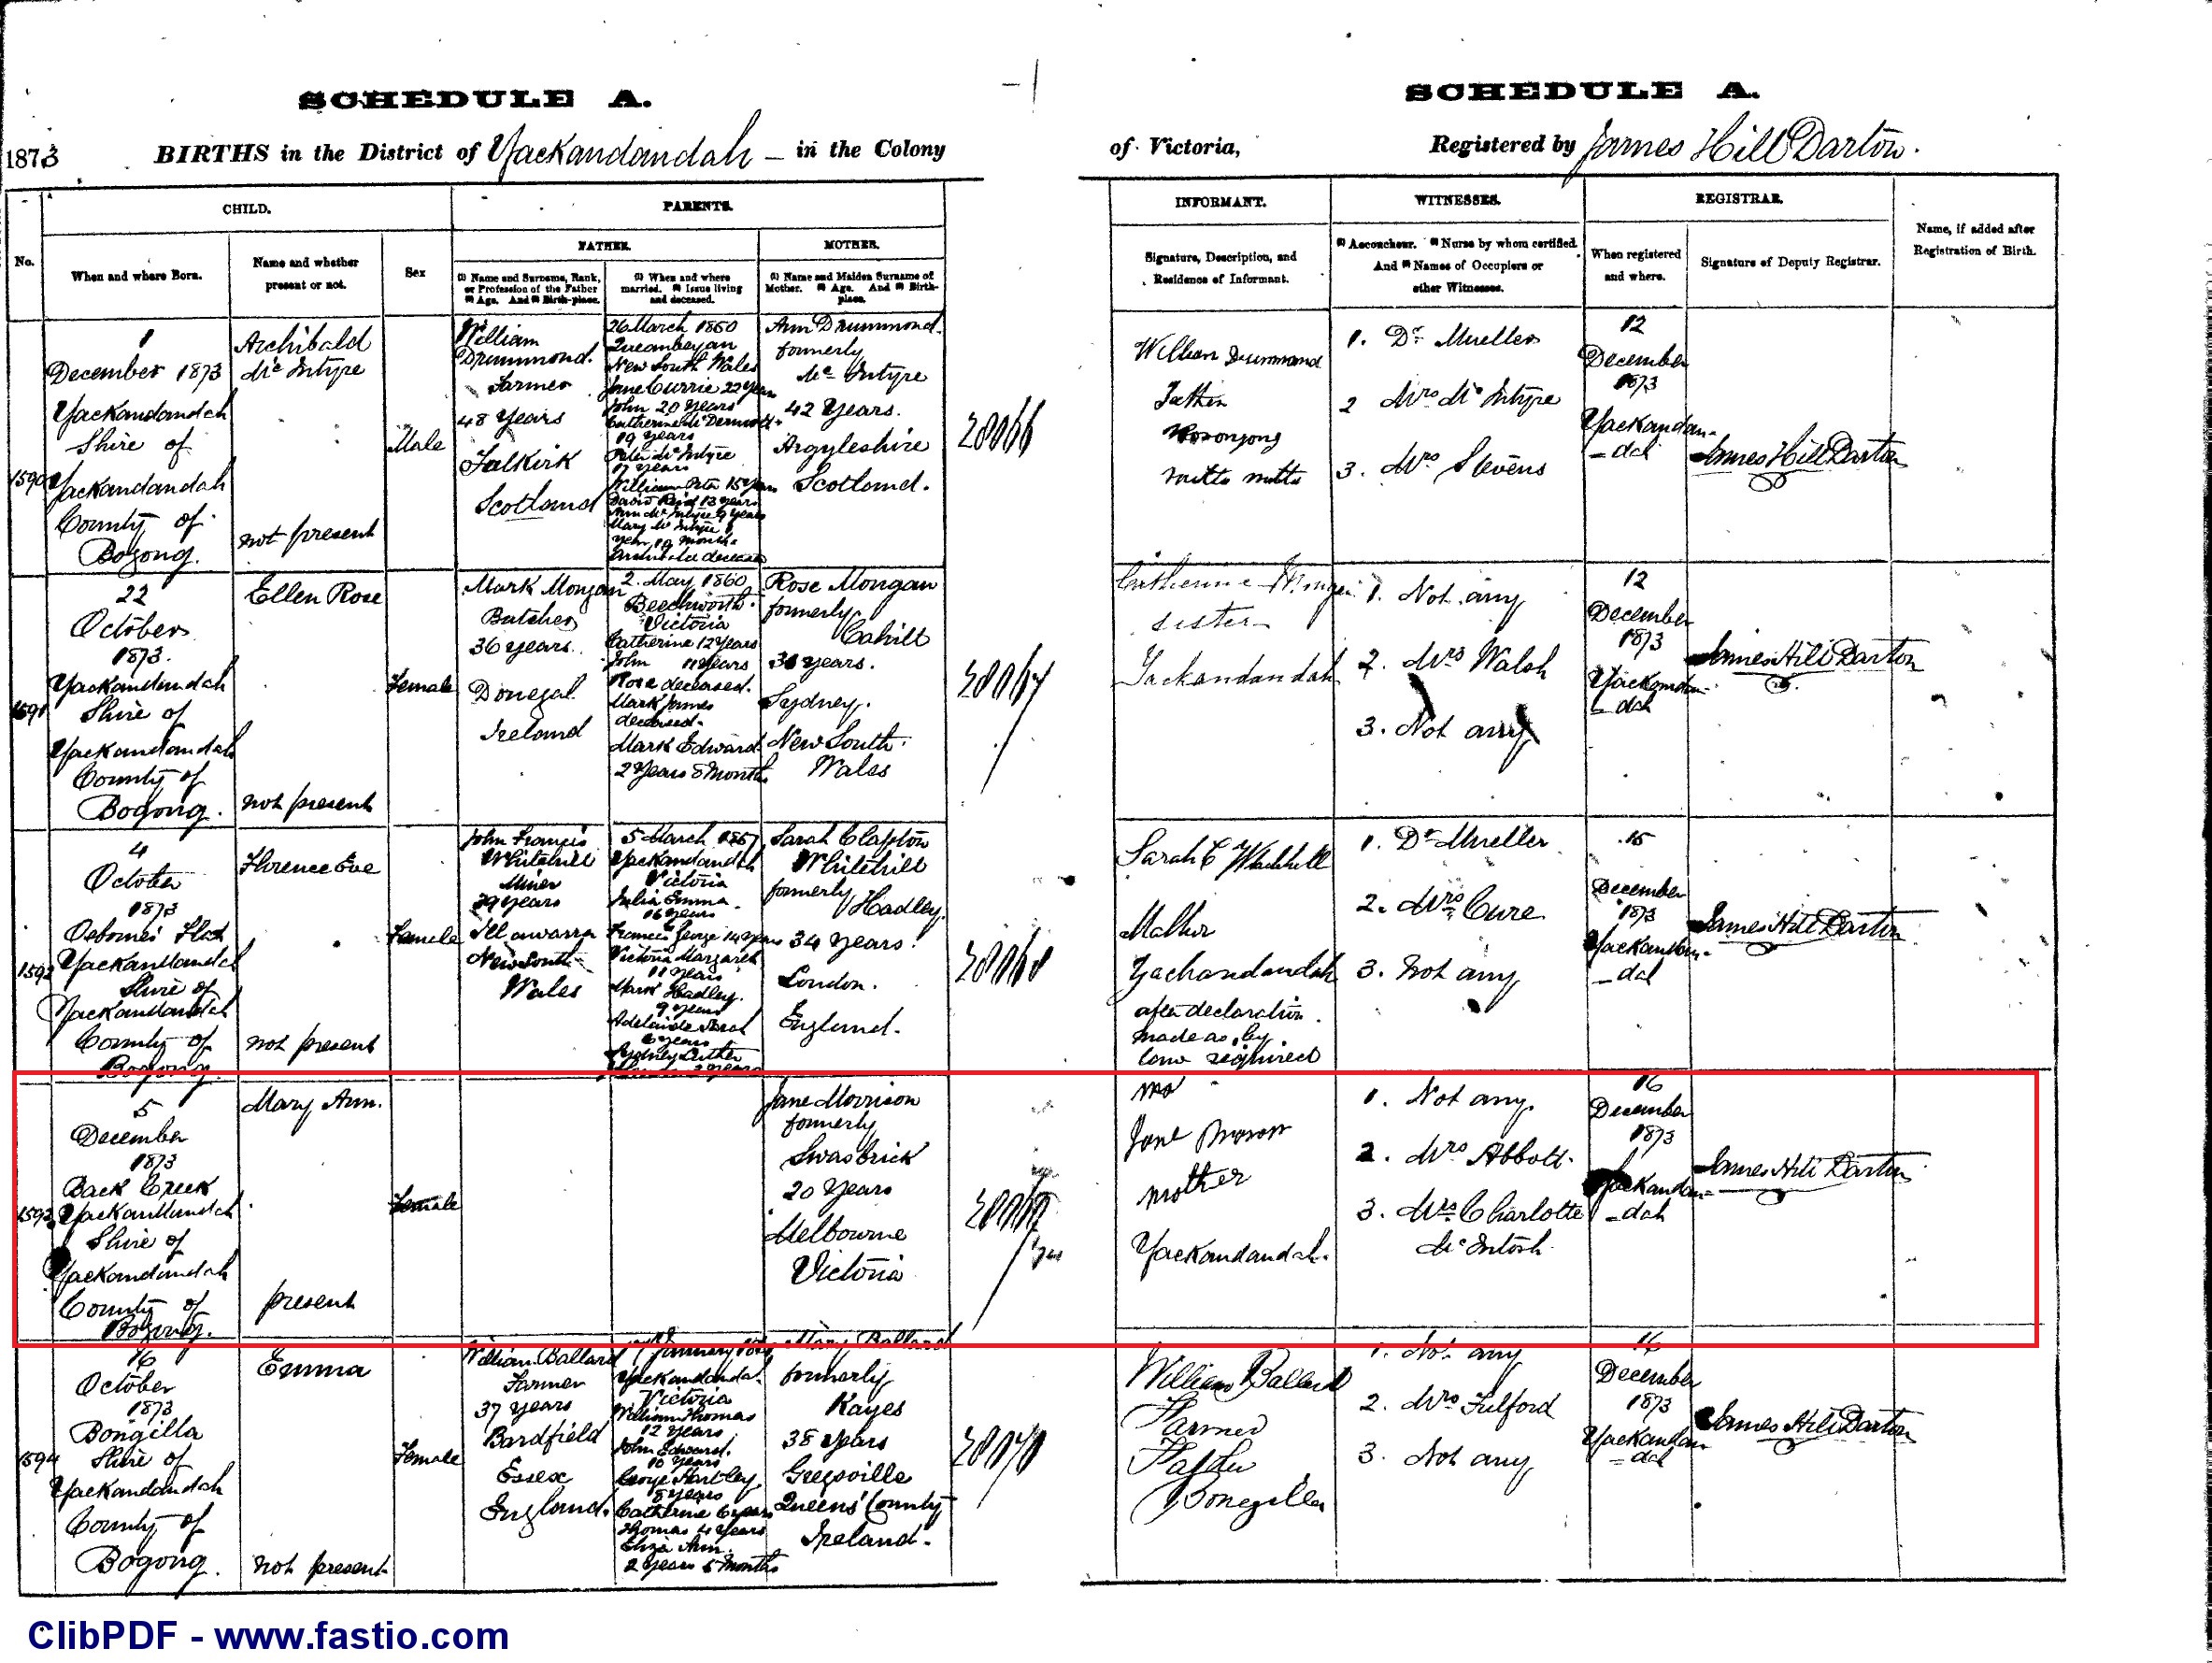 SCHEDULE A.
SCHEDULE A.
1873 BIRTHS in the District of Yackandandah – in the Colony
of Victoria, Registered by James Hill Darton.
CHILD.
PARENTS.
INFORMANT.
WITNESSES.
REGISTRAR.
Name, if added after
Registration of Birth.
FATHER.
MOTHER.
No.
When and where Born.
Name and whether
present or not.
Sex
(1) Name and Surname, Rank,
or Profession of the Father
(2) Age. And (3) Birth-place.
(1) When and where
married. (2) Issue living
and deceased.
(1) Name and Maiden Surname of
Mother. (2) Age. And (3) Birth-
place.
Signature, Description, and
Residence of Informant.
(1) Accoucheur. (2) Nurse by whom certified.
And (3) Names of Occupiers or
other Witnesses.
When registered
and where.
Signature of Deputy Registrar.
1590
1
December 1873
Yackandandah
Shire of
Yackandandah
County of
Bogong.
Archibald
McIntyre
not present
Male
William
Drummond.
Farmer
48 Years
Falkirk
Scotland
26 March 1850
Queanbeyan
New South Wales
Jane Currie 22 Years
John 20 Years
Catherine McDermott
19 years
Peter McIntyre
17 years
William Peter 15 Years
David Reid 13 years
Ann McIntyre 9 years
Mary McIntyre 1
year, 10 months
Archibald deceased
Ann Drummond.
formerly
McIntyre
42 Years.
Argyleshire
Scotland.
28066
William Drummond
Father
mitta mitta
1. Dr Mueller
2 Mrs McIntyre
3. Mrs Stevens
12
December
1873
Yackandan-
-dah
James Hill Darton
1591
22
October
1873.
Yackandandah
Shire of
Yackandandah
County of
Bogong.
Ellen Rose
not present
Female
Mark Mongan
Butcher
36 years.
Donegal
Ireland
2. May 1860
Beechworth.
Victoria
Catherine 12 Years
John 11 Years
Rose deceased.
Mark James
deceased.
Mark Edward
2 Years 8 Months
Rose Mongan
formerly
Cahill
years.
Sydney.
New South
Wales
28067
Catherine Mongan
sister
Yackandandah
1. Not any
2. Mrs Walsh
3. Not any
12
December
1873
Yackandan-
-dah
James Hill Darton
1592
4
October
1873
Osbornes Flat
Yackandandah
Shire of
Yackandandah
County of
Bogong.
Florence Eve
not present
Female
John Francis
Whitehill
Miner
39 years
Illawarra
New South
Wales
5 March 1857
Yackandandah
Victoria
Julia Emma.
16 years
Francis George 14 years
Victoria Margaret
11 years
Mark Hadley.
9 years
Adelaide Sarah
6 years
Sydney Luther
Sarah Clapton
Whitehill
formerly
Hadley
34 years.
London.
England.
28068
Sarah C Whitehill
Mother
Yackandandah
after declaration
made as by
law required
1. Dr Mueller
2. Mrs Cure
3. Not any
15
December
1873
Yackandan-
-dah
James Hill Darton
1593
5
December
1873
Back Creek
Yackandandah
Shire of
Yackandandah
County of
Bogong.
Mary Ann.
present
Female
Jane Morrison
formerly
Swasbrick
20 Years
Melbourne
Victoria
28069
mother
Yackandandah.
1. Not any.
2. Mrs Abbott.
3. Mrs Charlotte
McIntosh.
16
December
1873
Yackandan-
-dah
James Hill Darton
1594
16
October
1873
Bongilla
Shire of
Yackandandah
County of
Bogong.
Emma
not present
Female
William Ballard
Farmer
37 years
Bardfield
Essex
England.
January
Yackandandah.
Victoria
William Thomas
12 years
John Edward.
10 years
George Hartley
8 years
Catherine 6 years
Thomas 4 years
Eliza Ann.
2 years 5 months
Mary Ballard
formerly
Kayes
38 years
Queens' County
Ireland.
28070
William Ballard
Farmer
Father
Bonegilla
1. Not any
2. Mrs Fulford
3. Not any
16
December
1873
Yackandan-
-dah
James Hill Darton
ClibPDF - www.fastio.com